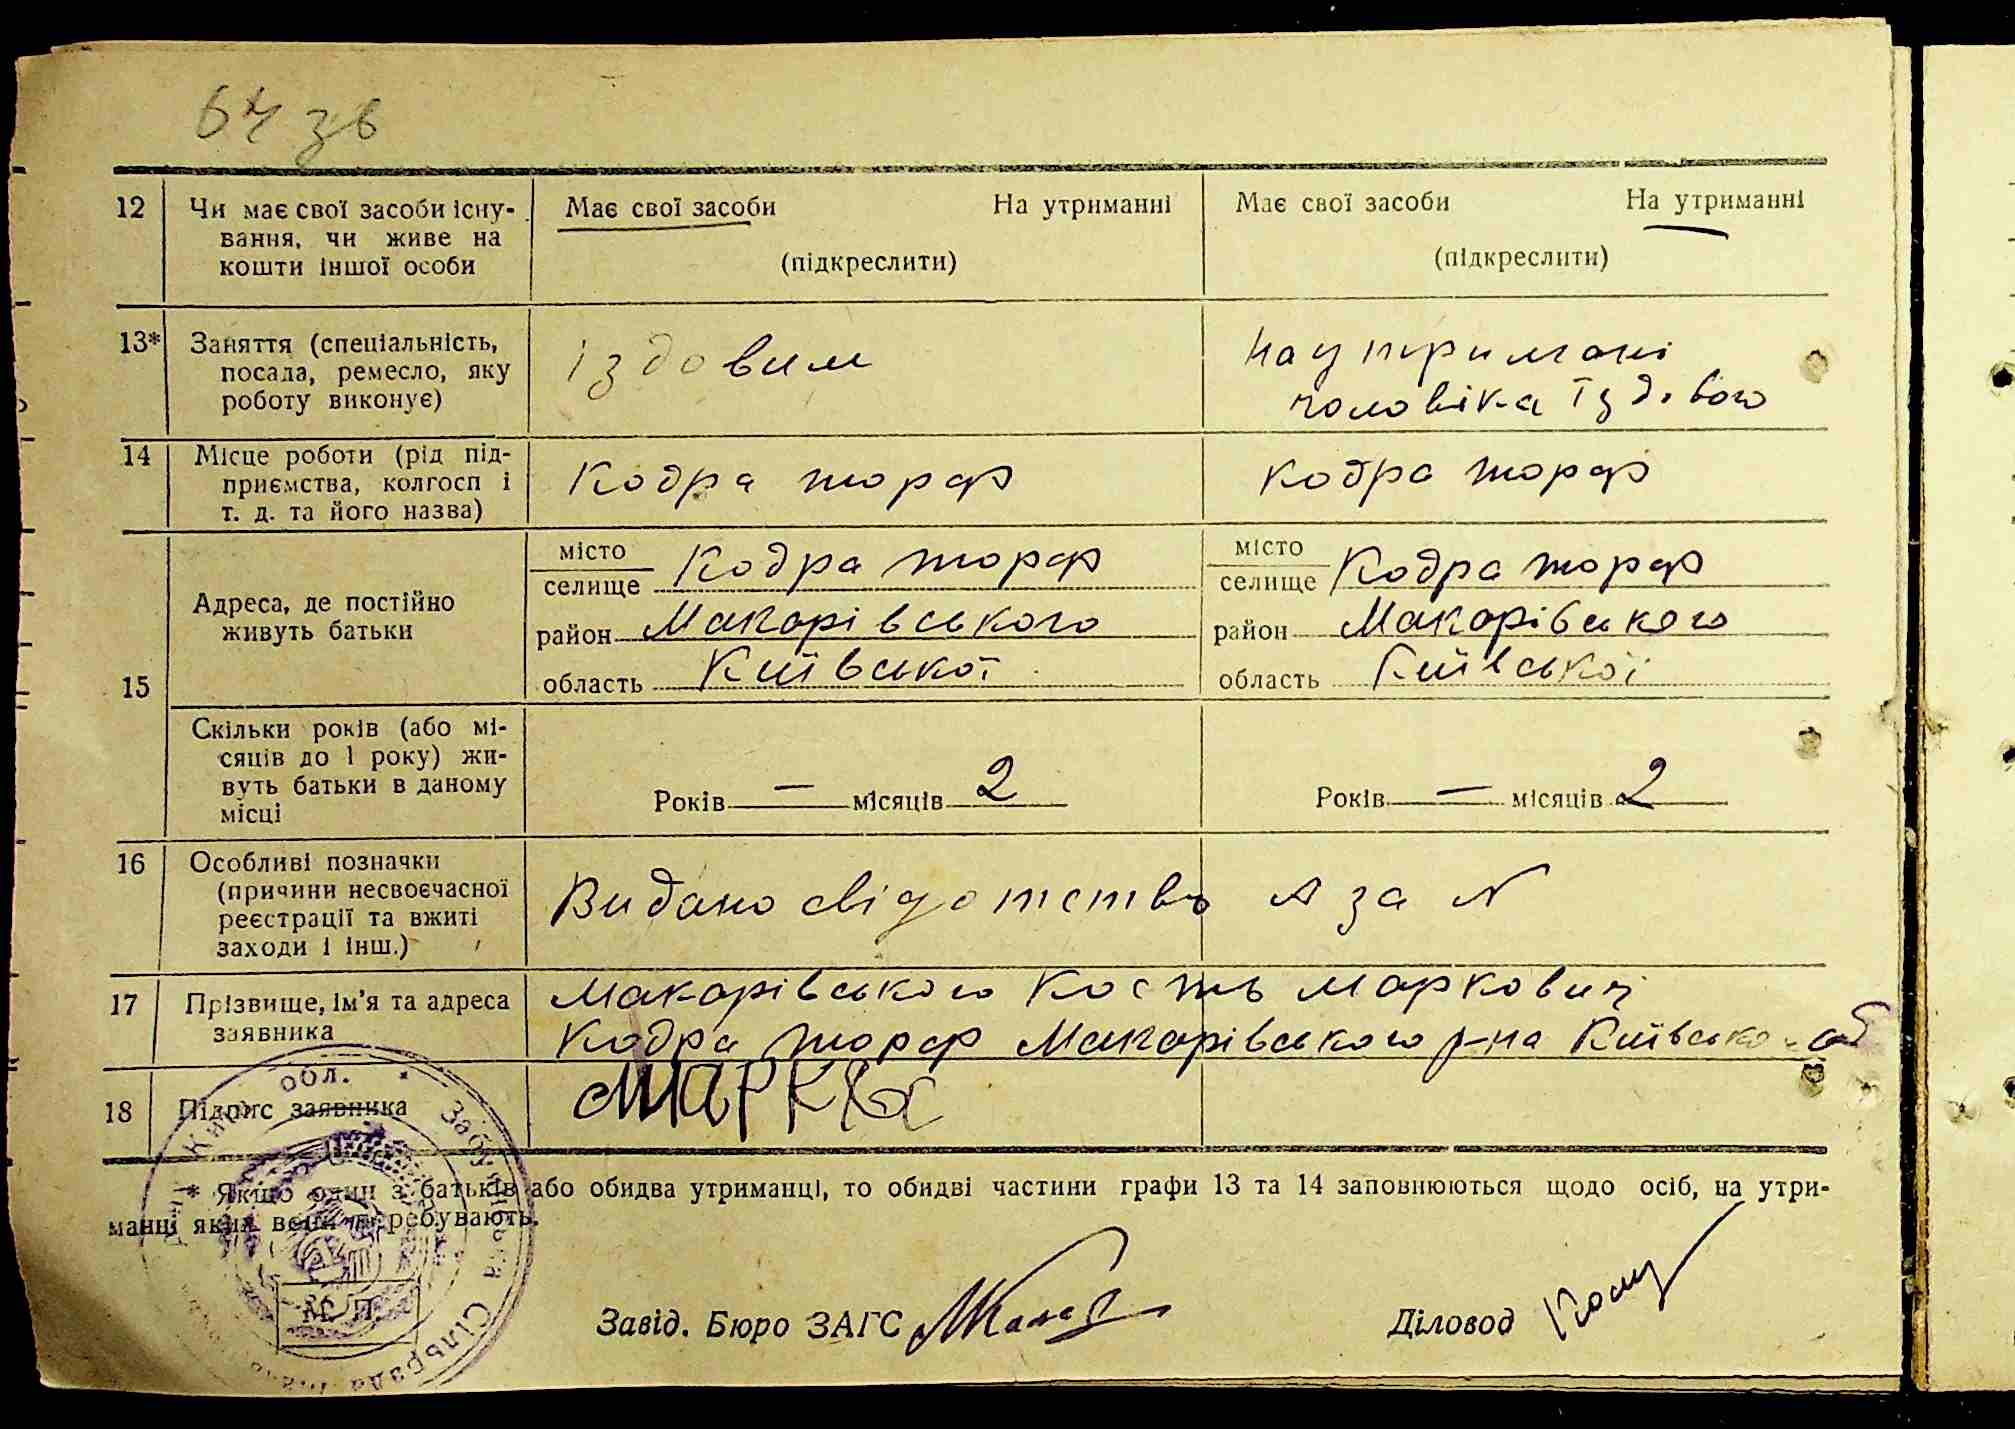 64 зв
12 Чи має свої засоби існу- Має свої засоби На утриманні Має свої засоби На утриманні
вання, чи живе на
кошти іншої особи (підкреслити) (підкреслити)
13* Заняття (спеціальність, їздовим На утримані
посада, ремесло, яку чоловіка їздового
роботу виконує)
14 Місце роботи (рід під- Кодра торф Кодра торф
приємства, колгосп і
т. д. та його назва)
15 Адреса, де постійно
живуть батьки
місто Кодра торф місто Кодра торф
селище селище
район Макарівського район Макарівського
область Київської область Київської
Скільки років (або мі-
сяців до 1 року) жи-
вуть батьки в даному
місці
Років — місяців 2 Років — місяців 2
16 Особливі позначки
(причини несвоєчасної Видано свідотство А за N
реєстрації та вжиті
заходи і інш.)
17 Прізвище, ім'я та адреса Макарівського Кость Маркович
заявника Кодра торф Макарівського р-на Київсько об
18 Підпис заявника
* Якщо один з батьків або обидва утриманці, то обидві частини графи 13 та 14 заповнюються щодо осіб, на утри-
манці яких вони перебувають.
М. П.
Завід. Бюро ЗАГС Діловод
обл. Сільрада